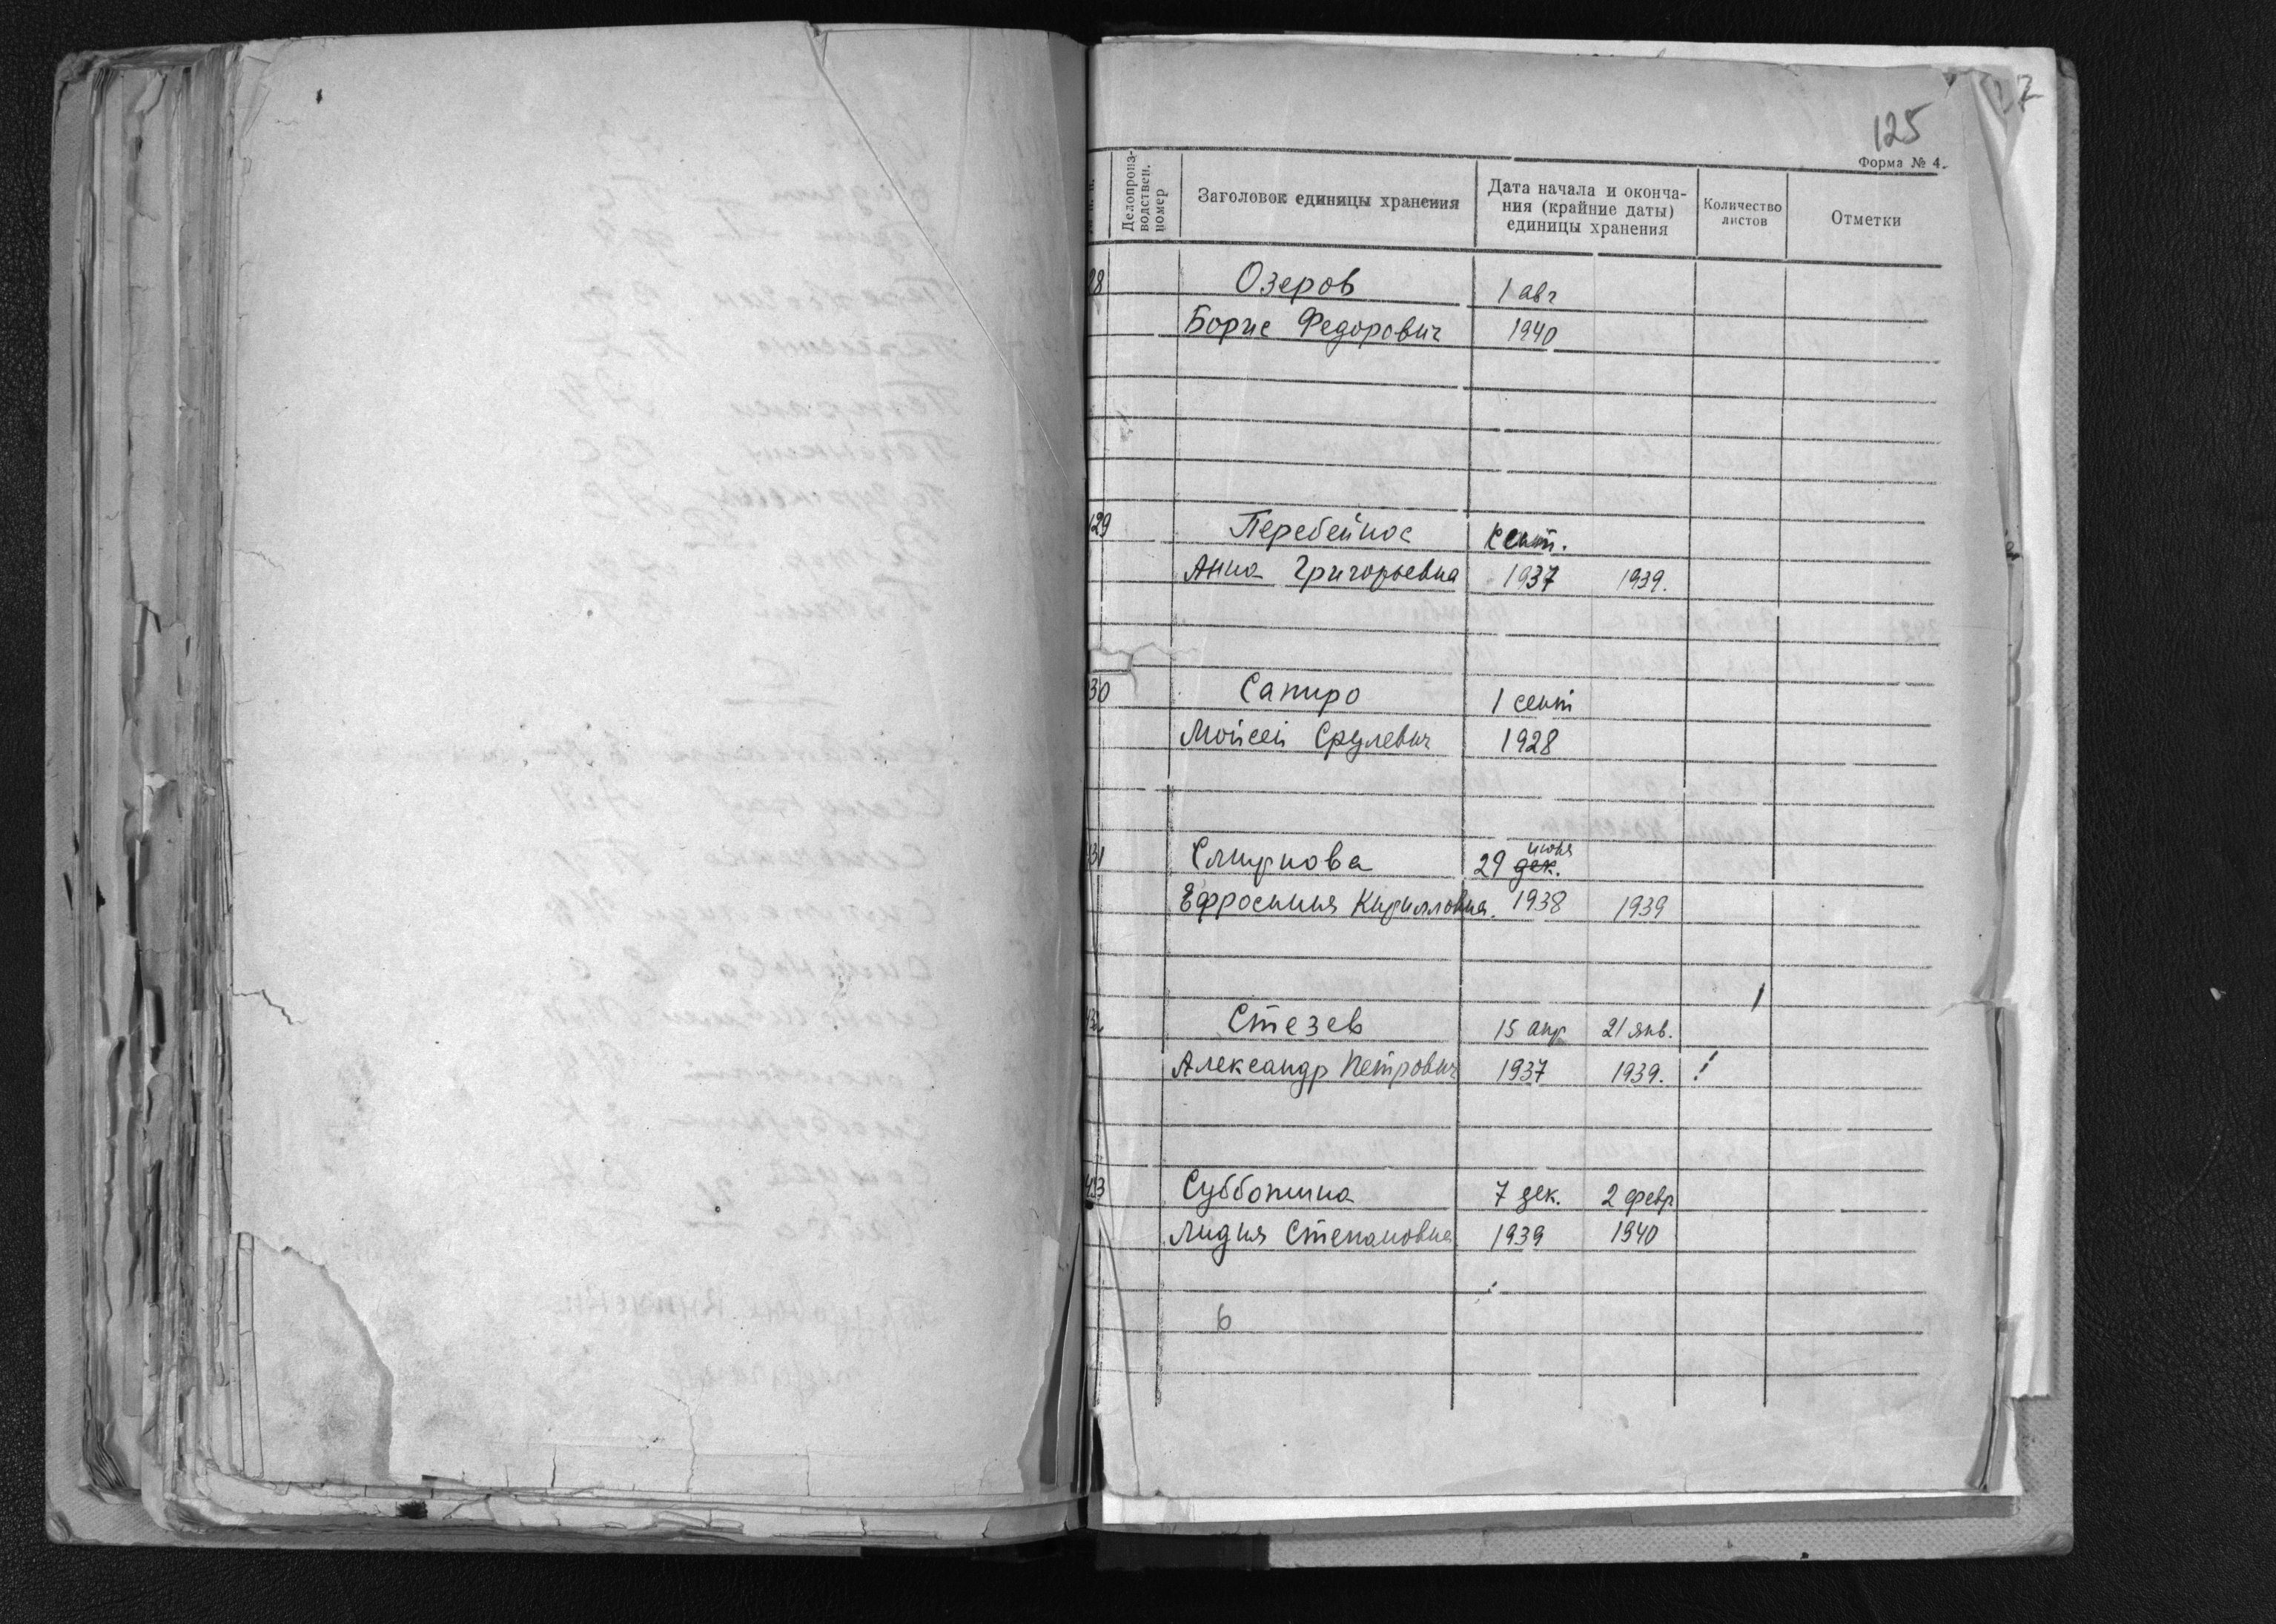 7
125
Форма № 4.
Делопроиз-
водствен.
номер
Заголовок единицы хранения
Дата начала и оконча-
ния (крайние даты)
единицы хранения
Количество
листов
Отметки
28 Озеров 1 авг
Борис Федорович 1940
129 Перебейнос сент.
Анна Григорьевна 1937 1939.
30 Сапиро 1 сент
Мойсей Срулевич 1928
31 Смирнова 29 дек. июня
Ефросиния Кирилловна. 1938 1939
Стезев 15 апр 21 янв.
Александр Петрович 1937 1939.
Субботина 7 дек. 2 февр
Лидия Степановна 1939 1940
6